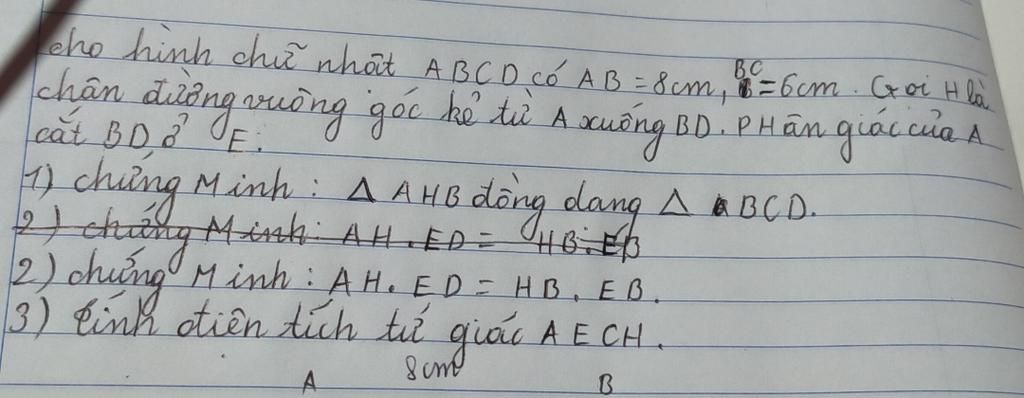 cho hình chữ nhât ABCD có AB = 8cm, BC = 6cm. Gọi H là
chân đường vuông góc kẻ từ A xuống BD. PHân giác của A
cắt BD ở E.
1) chứng Minh: Δ AHB đồng dang Δ BCD.
2) chứng Minh: AH. ED = HB. EB
2) chứng Minh: AH. ED = HB. EB.
3) tính diên tích tứ giác AECH.
8cm
A B